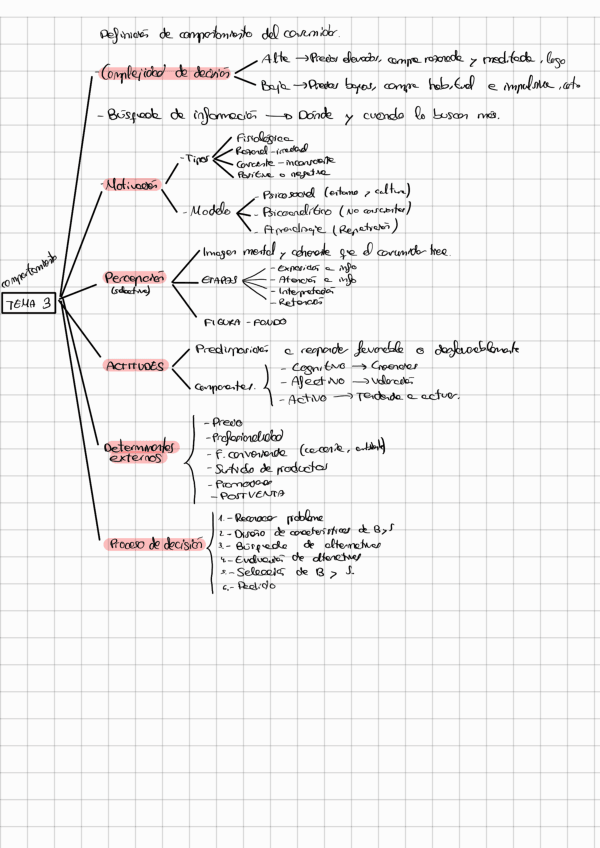 Definición de comportamiento del consumidor.
- Complejidad de decisión
Alta → Precios elevados, compra razonada y meditada, largo
Baja → Precios bajos, compra habitual e impulsiva, corto
- Búsqueda de información → Dónde y cuando lo buscan más.
- Motivación
- Tipos
Fisiológica
Racional - irracional
Consciente - inconsciente
Positiva o negativa
- Modelo
- Psicosocial (entorno y cultura)
- Psicoanalítico (No conscientes)
- Aprendizaje (Repetición)
comportamiento
TEMA 3
Percepción
(selectiva)
Imagen mental y coherente que el consumidor tiene.
ETAPAS
- Exposición a info
- Atención a info
- Interpretación
- Retención
FIGURA - FONDO
ACTITUDES
Predisposición a responder favorable o desfavorablemente
Componentes.
- Cognitivo → Creencias
- Afectivo → Valoración
- Activo → Tendencia a actuar.
Determinantes
externos
- Precio
- Profesionalidad
- F. conveniencia (cercanía,
- Surtido de productos
- Promociones
- POSTVENTA
Proceso de decisión
1.- Reconocer problema
2.- Diseño de características de B y S
3.- Búsqueda de alternativas
4.- Evaluación de alternativas
5.- Selección de B y S.
6.- Pedido